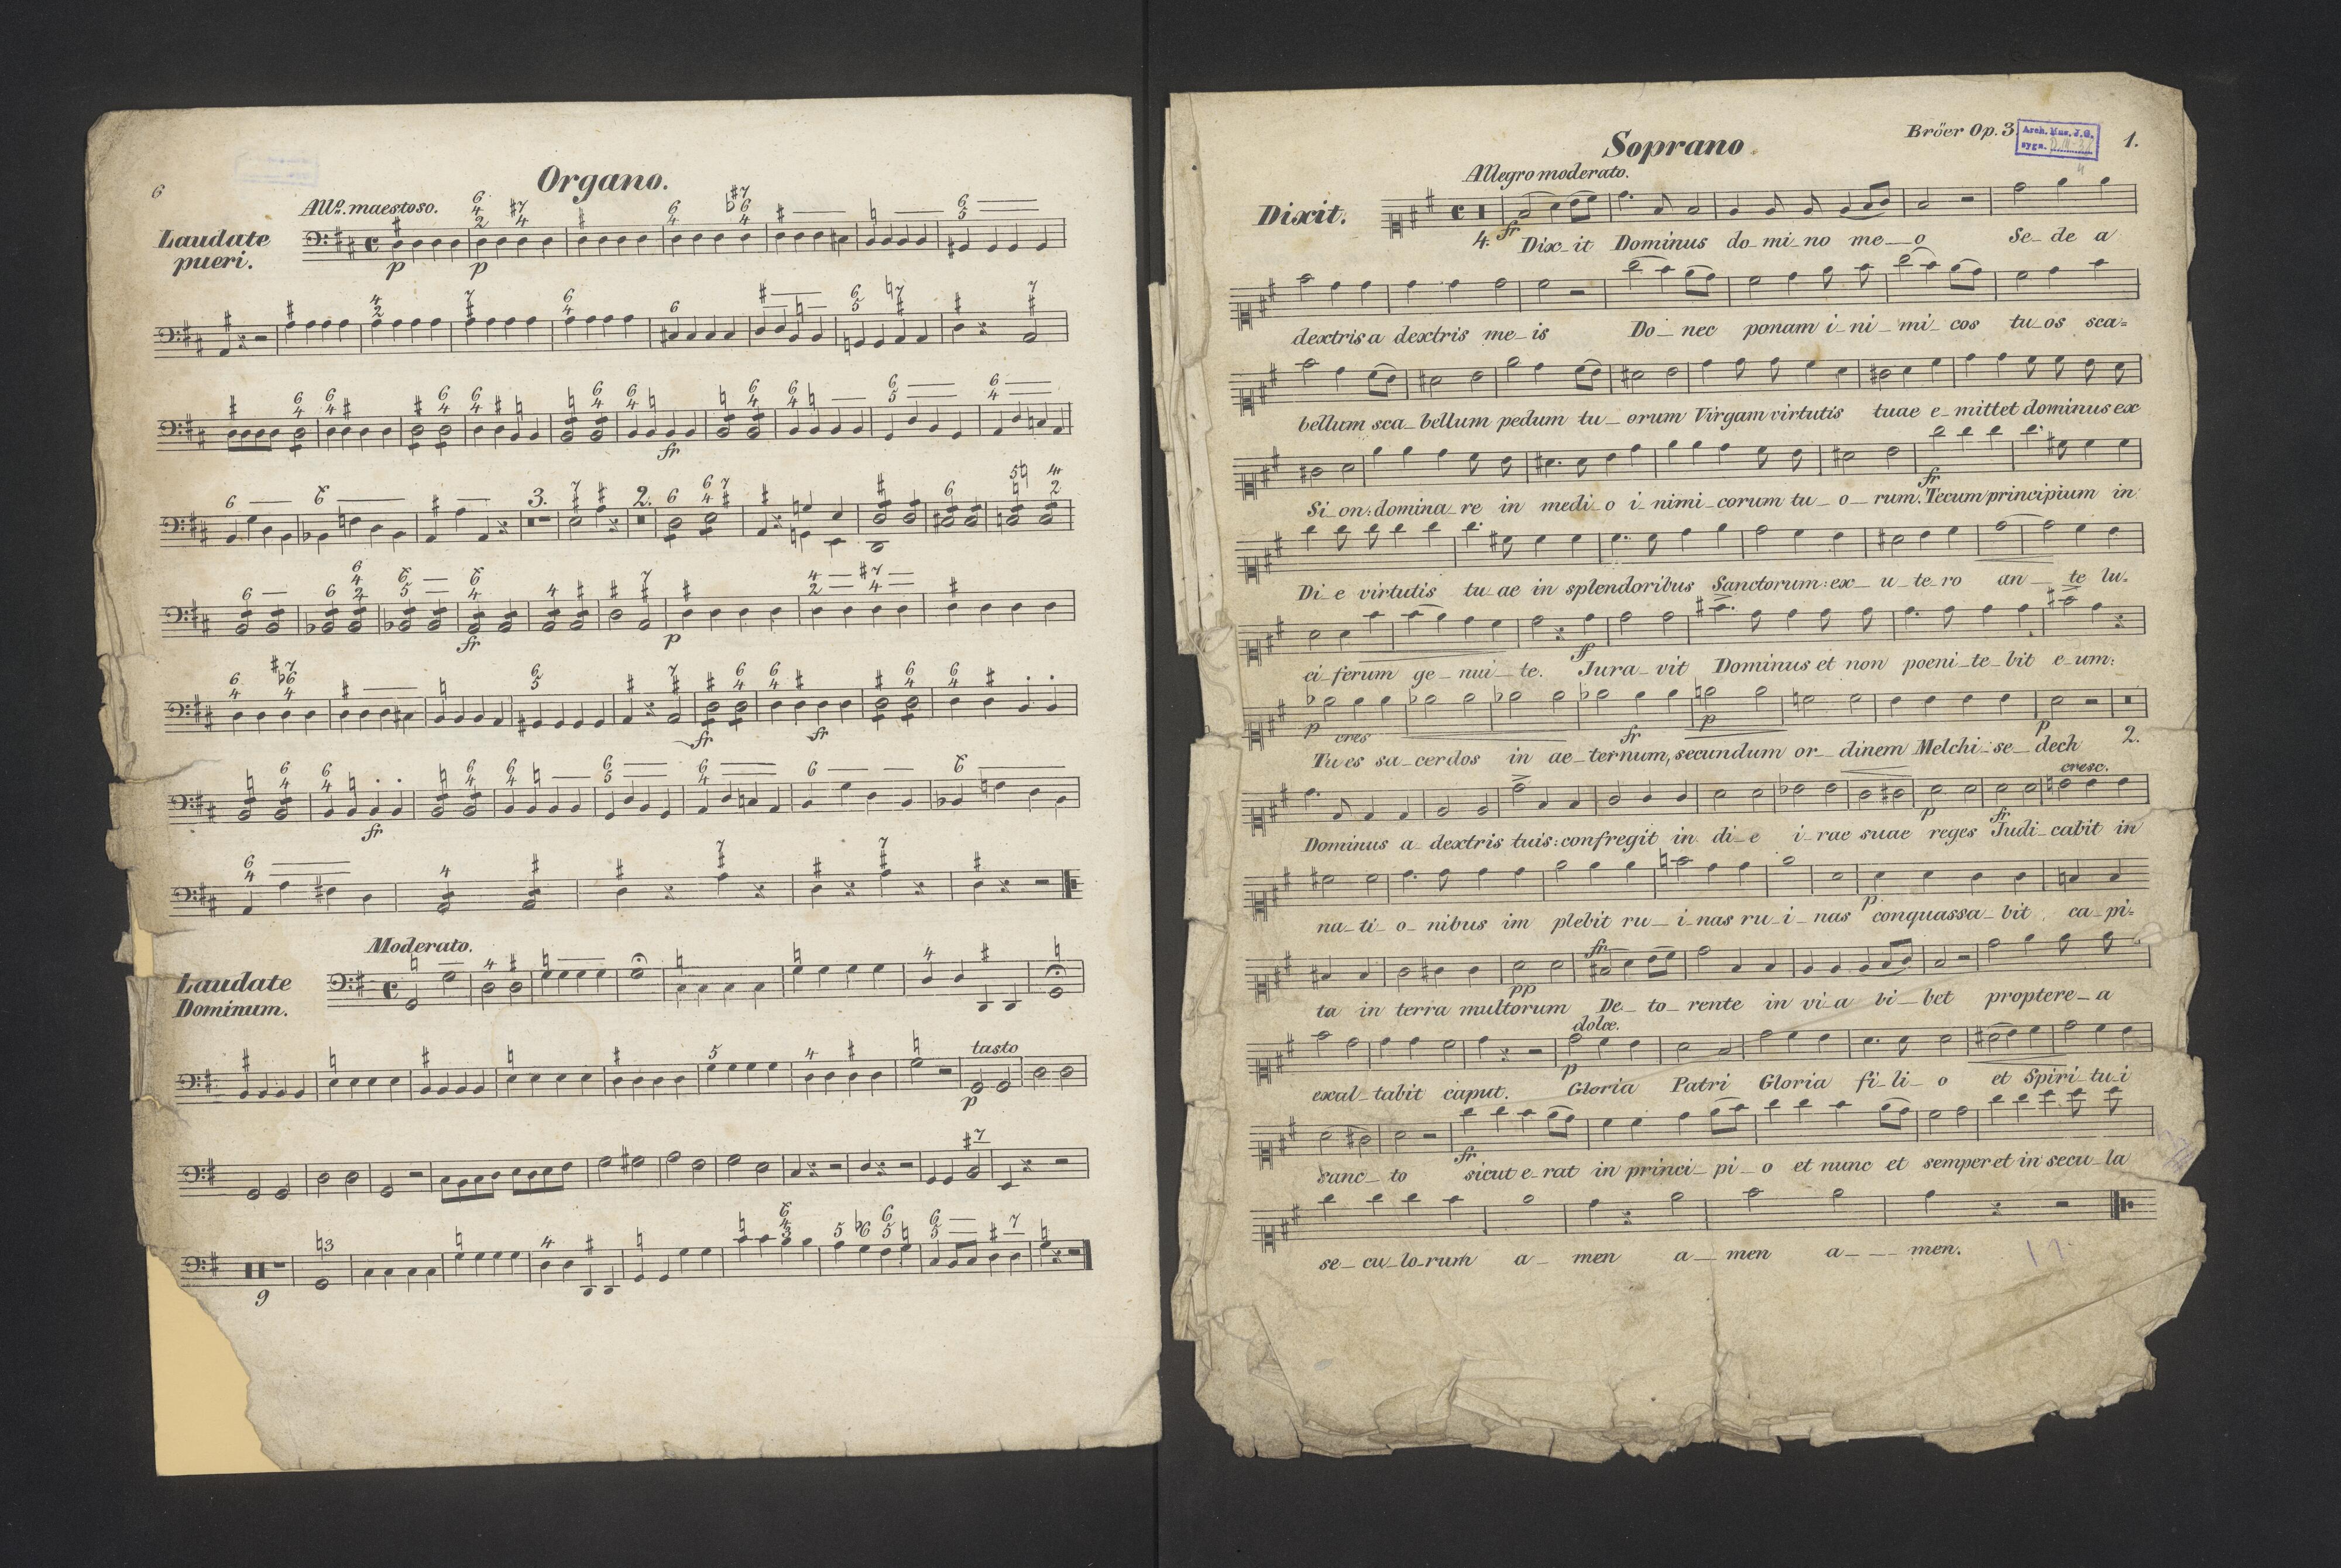 6
Organo.
Allo. maestoso.
Laudate
pueri.
p p
fr
3. 2.
fr p
fr fr
fr
Moderato.
Laudate
Dominum.
tasto
p
9
Bröer Op. 3.
Arch. Mus. J.G.
sygn.
1.
Soprano
Allegro moderato.
Dixit.
4. fr
Dix_it Dominus do_mi_no me__o Se_de a
dextris a dextris me_is Do_nec ponam i_ni_mi_cos tu_os sca=
bellum sca_bellum pedum tu_orum Virgam virtutis tuae e_mittet dominus ex
fr
Si_on: domina_re in medi_o i_nimi_corum tu_o_rum. Tecum principium in
Di_e virtutis tu_ae in splendoribus Sanctorum: ex_u_te_ro an__te lu-
ff
ci_ferum ge_nui_te. Jura_vit Dominus et non poeni_te_bit e_um:
p cres fr p p
Tu es sa_cerdos in ae_ternum, secundum or_dinem Melchi_se_dech 2.
cresc.
p fr
Dominus a_dextris tuis: confregit in di_e i_rae suae reges Judi_cabit in
p
na_ti_o_nibus im plebit ru_i_nas ru_i_nas conquassa_bit ca_pi=
fr
pp
ta in terra multorum De_to_rente in vi_a bi_bet proptere_a
dolce.
p
exal_tabit caput. Gloria Patri Gloria fi_li_o et Spiri_tu_i
fr
sanc_to sicut e_rat in princi_pi_o et nunc et semper et in secu_la
se_cu_lo_rum a_men a_men a___men.